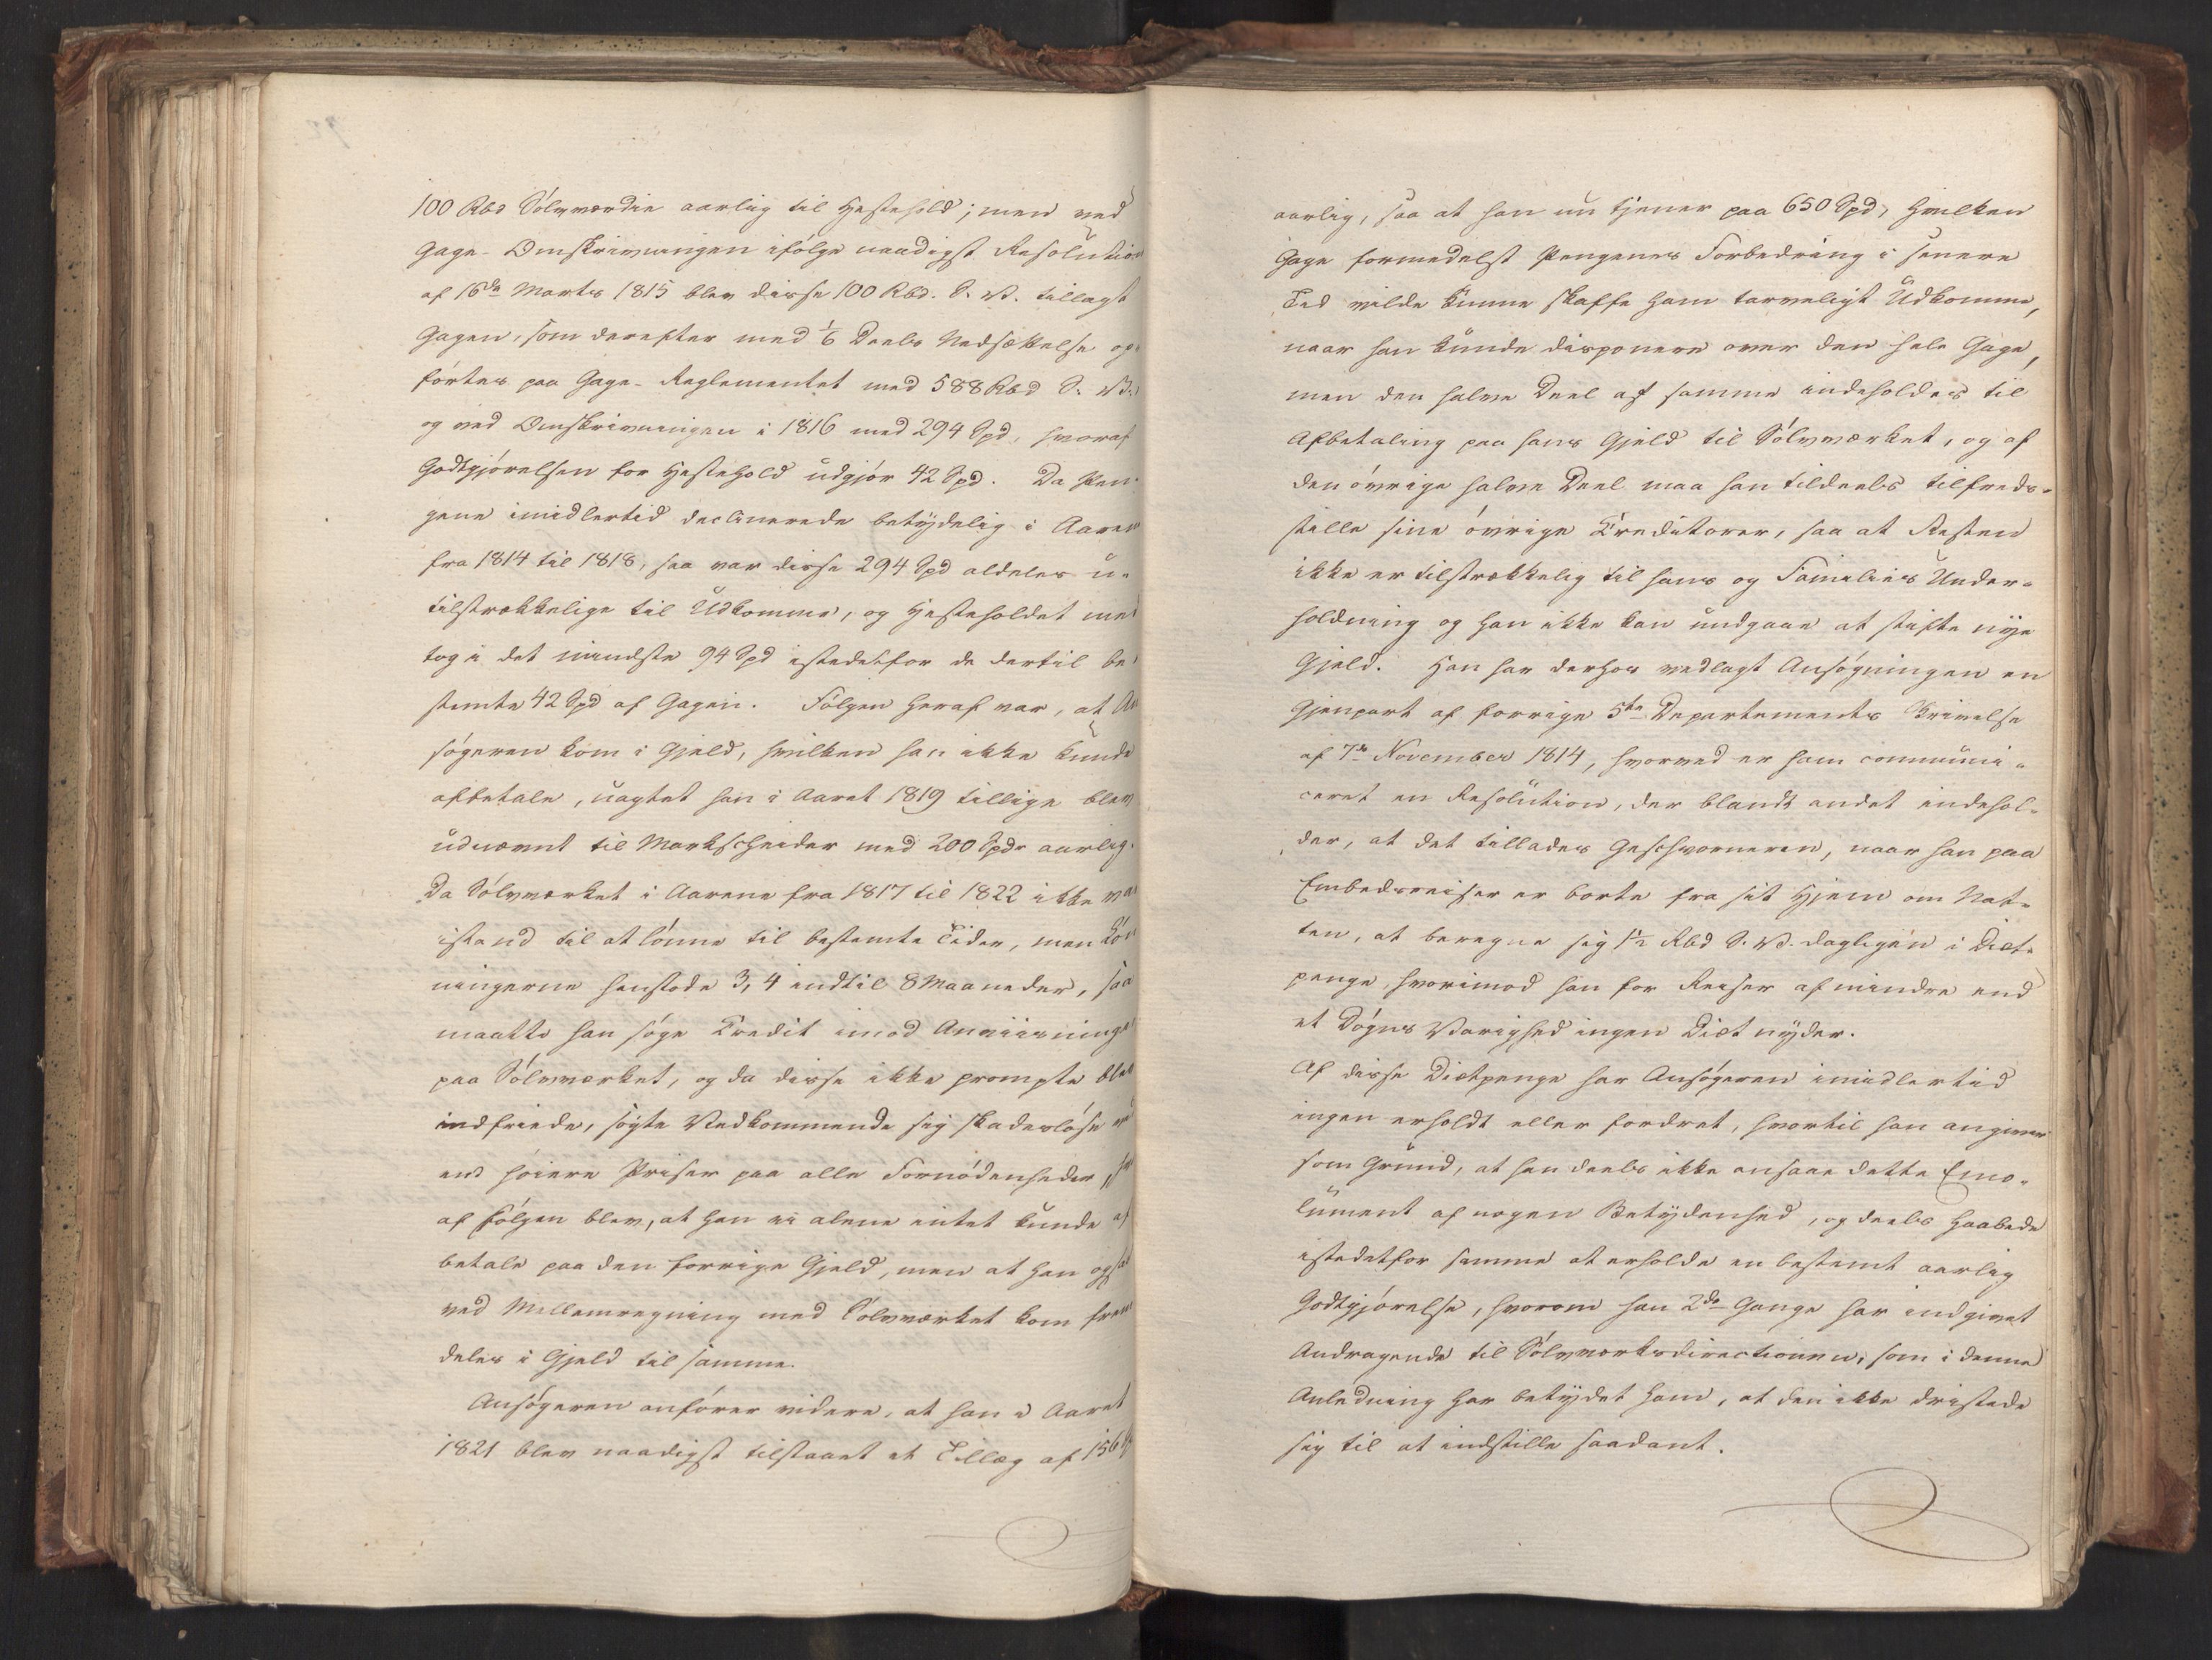 100 Rbd Sølvværdie aarlig til Hestehold; men ved
Gage-Omskrivningen ifølge naadigst Resolution
af 16de Marts 1815 blev disse 100 Rbd. S. V. tillagt
Gagen, som derefter med 1/6 Deels Nedsættelse op-
førtes paa Gage-Reglementet med 588 Rbd S. V.
og ved Omskrivningen i 1816 med 294 Spd, hvoraf
Godtgjørelsen for Hestehold udgjør 42 Spd. Da Pen-
gene imidlertid declinerede betydelig i Aarene
fra 1814 til 1818, saa var disse 294 Spd aldeles u-
tilstrækkelige til Udkomme, og Hesteholdet med
tog i det mindste 94 Spd istedetfor de dertil be-
stemte 42 Spd af Gagen. Følgen heraf var, at An
søgeren kom i Gjeld, hvilken han ikke kunde
afbetale, uagtet han i Aaret 1819 tillige blev
udnævnt til Markscheider med 200 Spdr aarlig.
Da Sølvværket i Aarene fra 1817 til 1822 ikke var
istand til at lønne til bestemte Tider, men Løn
ningerne henstode 3, 4 indtil 8 Maaneder, saa
maatte han søge Credit imod Anviisninger
paa Sølvværket, og da disse ikke prompte blev
indfriede, søgte Vedkommende sig skadesløse ved
end høiere Priser paa alle Fornødenheder, hvor
af Følgen blev, at han ei alene intet kunde af
betale paa den forrige Gjeld, men at han ogsaa
ved Mellemregning med Sølvværket kom frem
deles i Gjeld til samme.
Ansøgeren anfører videre, at han i Aaret
1821 blev naadigst tilstaaet et Tillæg af 156 Sp
aarlig, saa at han nu tjener paa 650 Spd, hvilken
Gage formedelst Pengenes Forbedring i senere
Tid vilde kunne skaffe ham tarveligt Udkomme,
naar han kunde disponere over den hele Gage,
men den halve Deel af samme indeholdes til
Afbetaling paa hans Gjeld til Sølvværket, og af
den øvrige halve Deel maa han tildeels tilfreds-
stille sine øvrige Creditorer, saa at Resten
ikke er tilstrækkelig til hans og Families Under-
holdning og han ikke kan undgaae at stifte nye
Gjeld. Han har derhos vedlagt Ansøgningen en
Gjenpart af forrige 5te Departements Skrivelse
af 7de November 1814, hvorved er ham communi-
ceret en Resolution, der blandt andet indehol-
der, at det tillades Geschwornerne, naar han paa
Embedsreiser er borte fra sit Hjem om Nat-
ten, at beregne sig 1 1/2 Rbd S. V. dagligen i Diæt-
penge, hvorimod han for Reiser af mindre end
et Døgns Varighed ingen Diæt nyder.
Af disse Diætpenge har Ansøgeren imidlertid
ingen erholdt eller fordret, hvortil han angiver
som Grund, at han deels ikke ansaae dette Emo-
lument af nogen Betydenhed, og deels haabede
istedetfor samme at erholde en bestemt aarlig
Godtgjørelse, hvorom han 2de Gange har indgivet
Andragende til Sølvværksdirectionen, som i denne
Anledning har betydet ham, at den ikke dristede
sig til at indstille saadant.